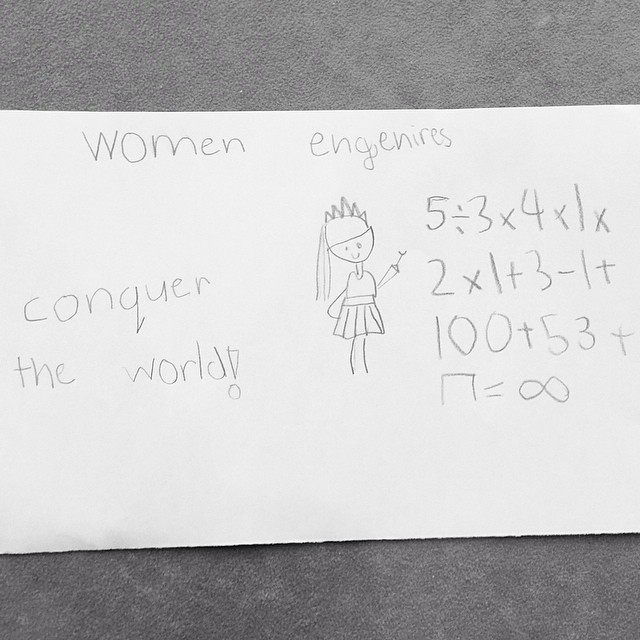 women engenires
conquer
the world!
5÷3×4×1×
2×1+3-1+
100+53+
π=∞